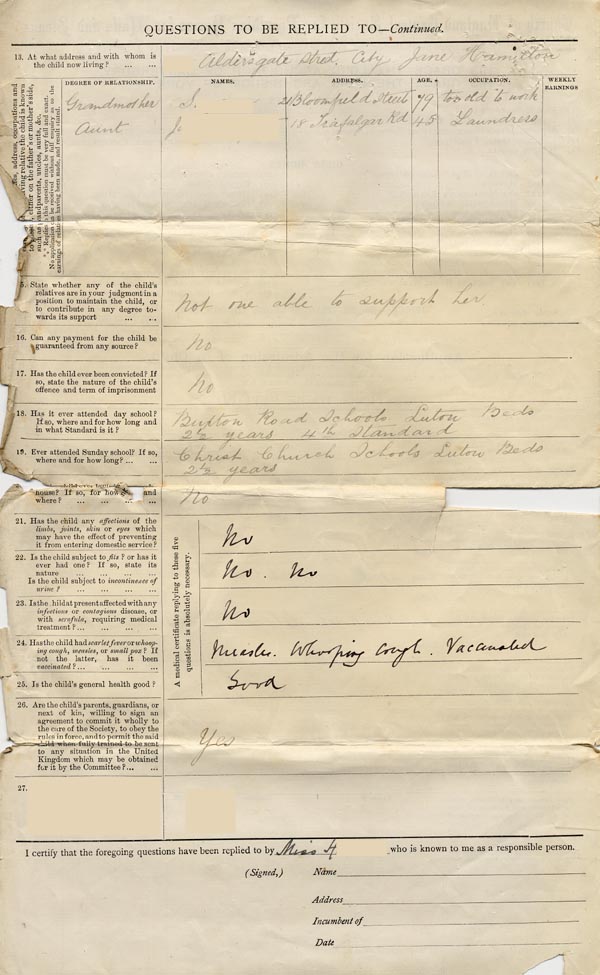 QUESTIONS TO BE REPLIED TO—Continued.
13. At what address and with whom is
the child now living? ... ...
Aldersgate Street. City Jane Hamilton
DEGREE OF RELATIONSHIP. NAMES. ADDRESS. AGE. OCCUPATION. WEEKLY EARNINGS
address, occupations and
living relative the child is known
either on the father's or mother's side,
such as grandparents, uncles, aunts, &c.
Replies to this question must be very full and exact.
No application can be received without full enquiry as to the
earnings of relatives having been made, and result stated.
Grandmother 21 Bloomfield Street 79 too old to work
Aunt J 18 Trafalgar Rd 45 Laundress
5. State whether any of the child's
relatives are in your judgment in a
position to maintain the child, or
to contribute in any degree to-
wards its support ... ...
Not one able to support her
16. Can any payment for the child be
guaranteed from any source?
No
17. Has the child ever been convicted? If
so, state the nature of the child's
offence and term of imprisonment
No
18. Has it ever attended day school?
If so, where and for how long and
in what Standard is it?
Road Schools Luton Beds
2½ years 4th Standard
19. Ever attended Sunday school? If so,
where and for how long? ... ...
Christ Church Schools Luton Beds
2½ years
house? If so, for how and
where? ... ... ... ...
No
A medical certificate replying to these five
questions is absolutely necessary.
21. Has the child any affections of the
limbs, joints, skin or eyes which
may have the effect of preventing
it from entering domestic service?
No
22. Is the child subject to fits? or has it
ever had one? If so, state its
nature ... ... ... ...
Is the child subject to incontinence of
urine? ... ... ... ...
No. No
23. Is the child at present affected with any
infectious or contagious disease, or
with scrofula, requiring medical
treatment? ... ... ...
No
24. Has the child had scarlet fever or whoop-
ing cough, measles, or small pox? If
not the latter, has it been
vaccinated? ... ... ...
Measles. Whooping Cough. Vaccinated
25. Is the child's general health good?
Good
26. Are the child's parents, guardians, or
next of kin, willing to sign an
agreement to commit it wholly to
the care of the Society, to obey the
rules in force, and to permit the said
child when fully trained to be sent
to any situation in the United
Kingdom which may be obtained
for it by the Committee? ... ...
Yes
27.
I certify that the foregoing questions have been replied to by Miss H who is known to me as a responsible person.
(Signed,) Name
Address
Incumbent of
Date